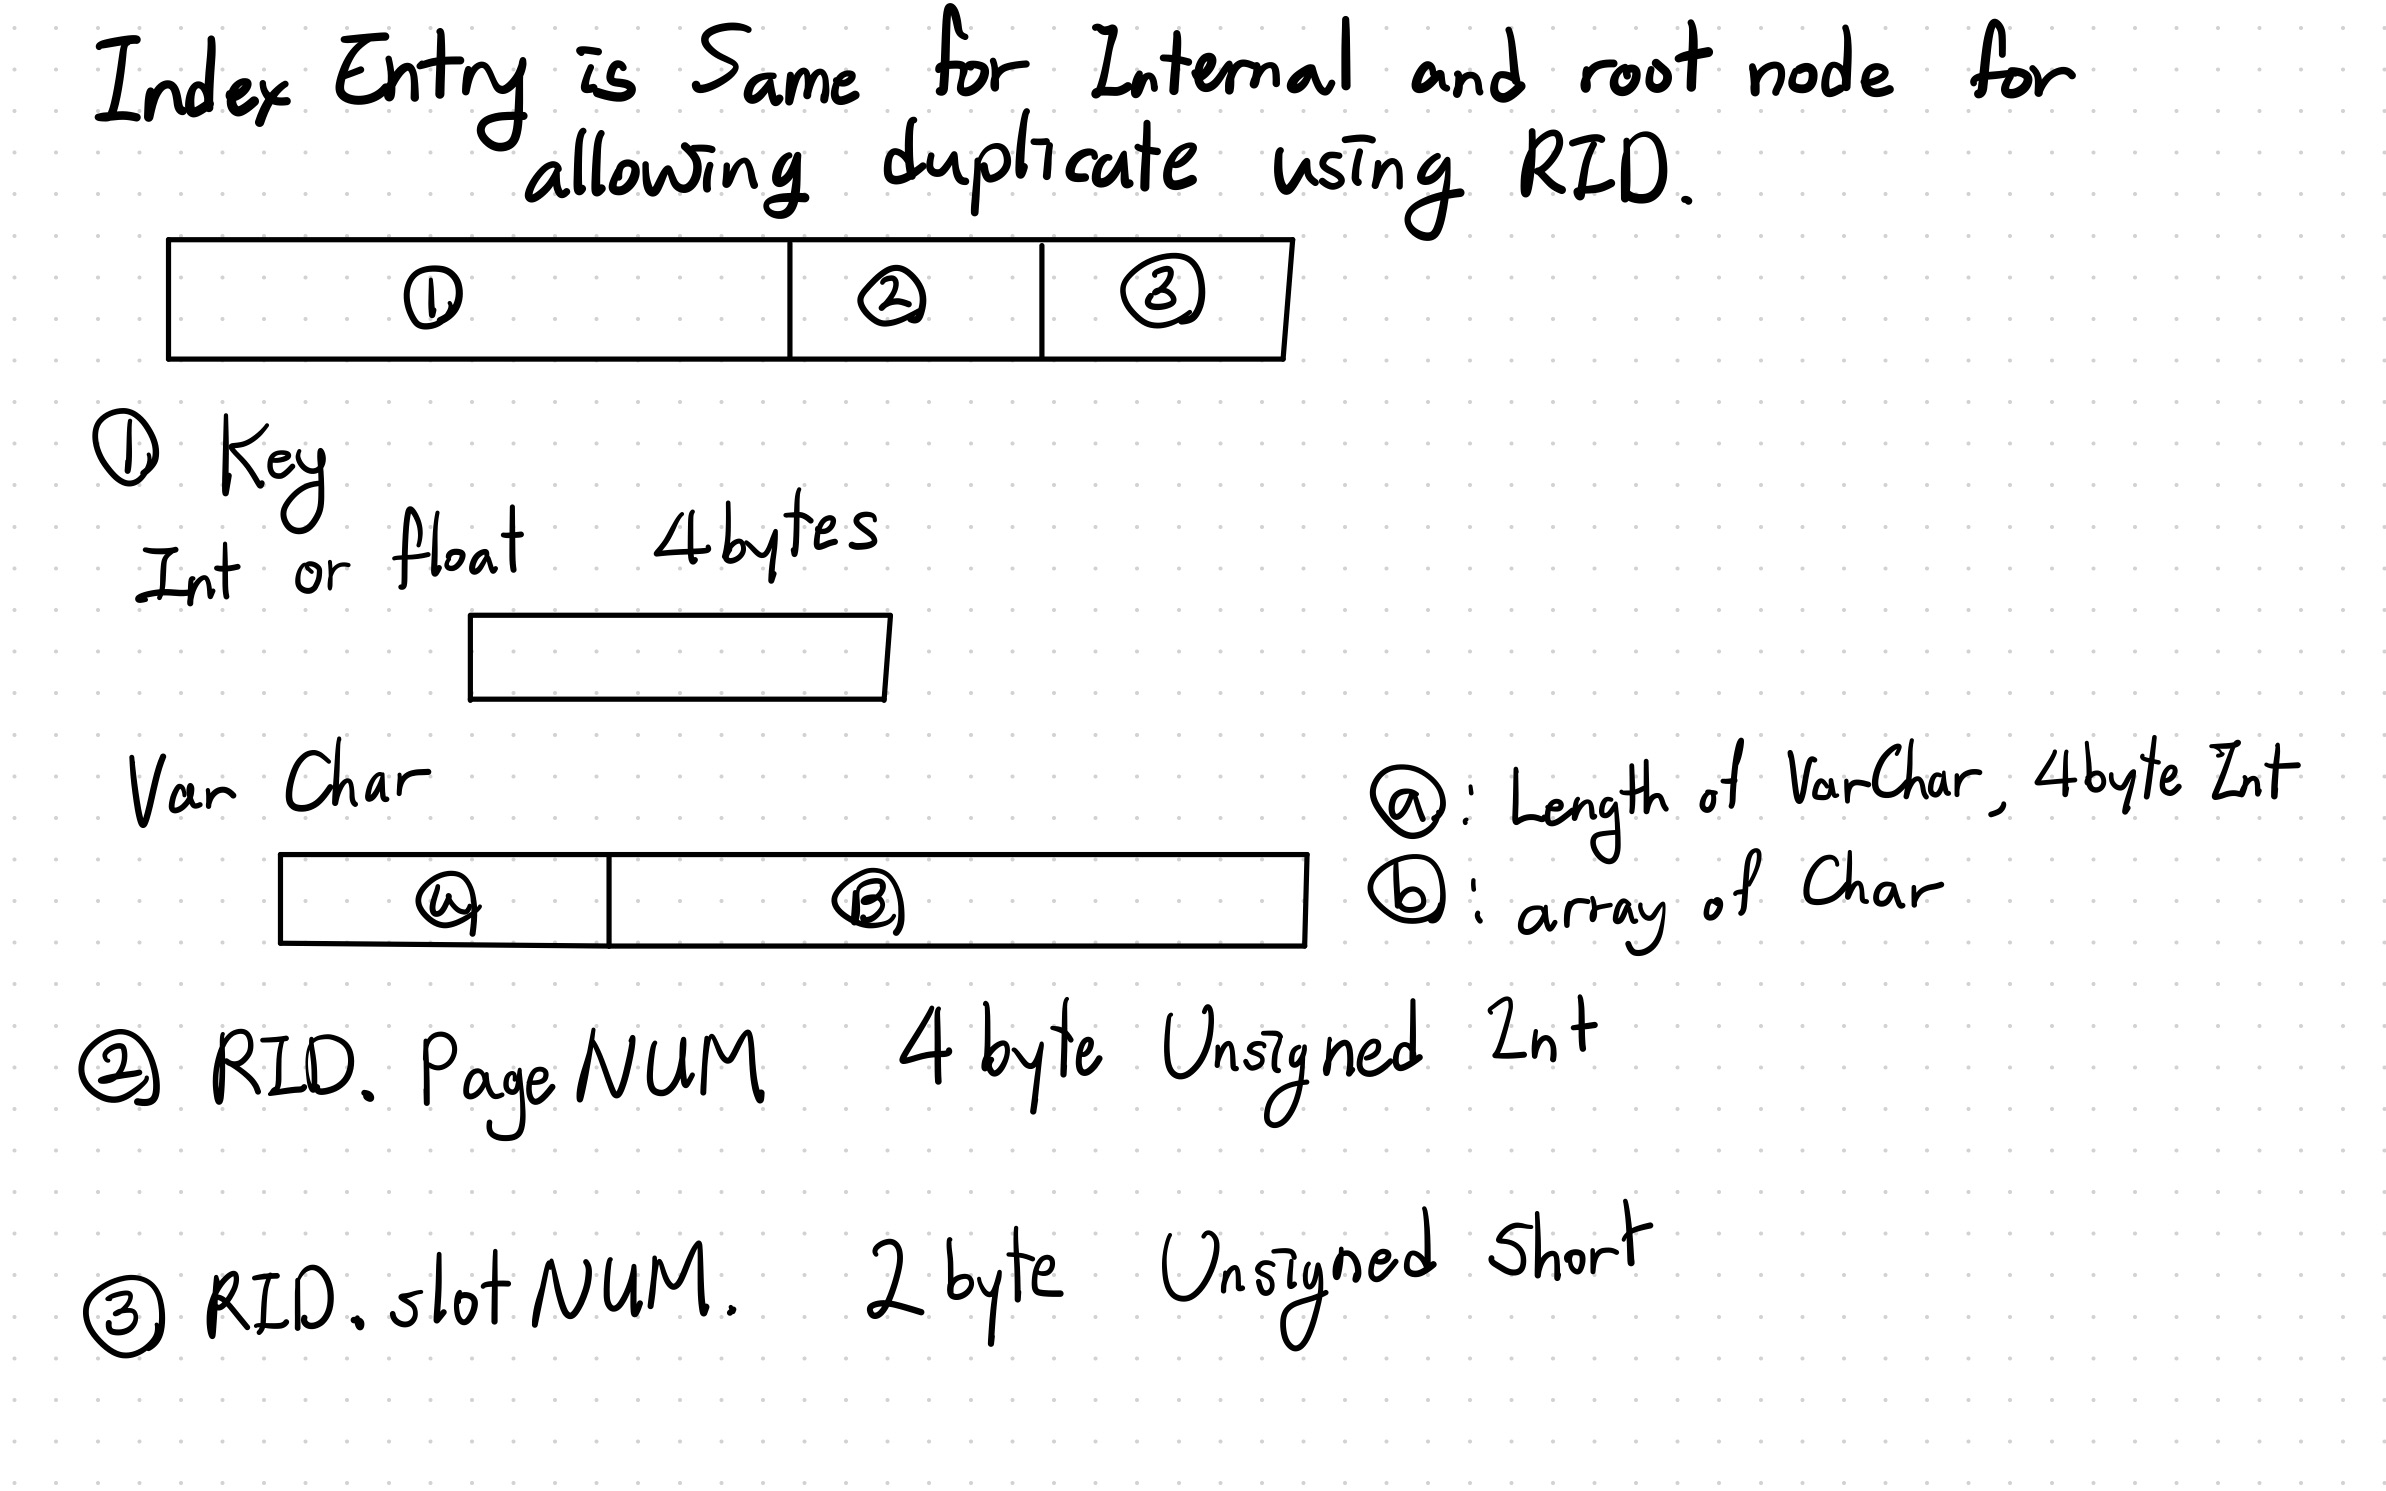 Index Entry is Same for Internal and root node for
allowing duplicate using RID.
① ② ③
① Key
Int or float 4 bytes
Var Char
ⓐ : Length of VarChar, 4 byte Int
ⓐ Ⓑ
ⓑ : array of Char
② RID. Page NUM. 4 byte Unsigned Int
③ RID. slot NUM. 2 byte Unsigned short